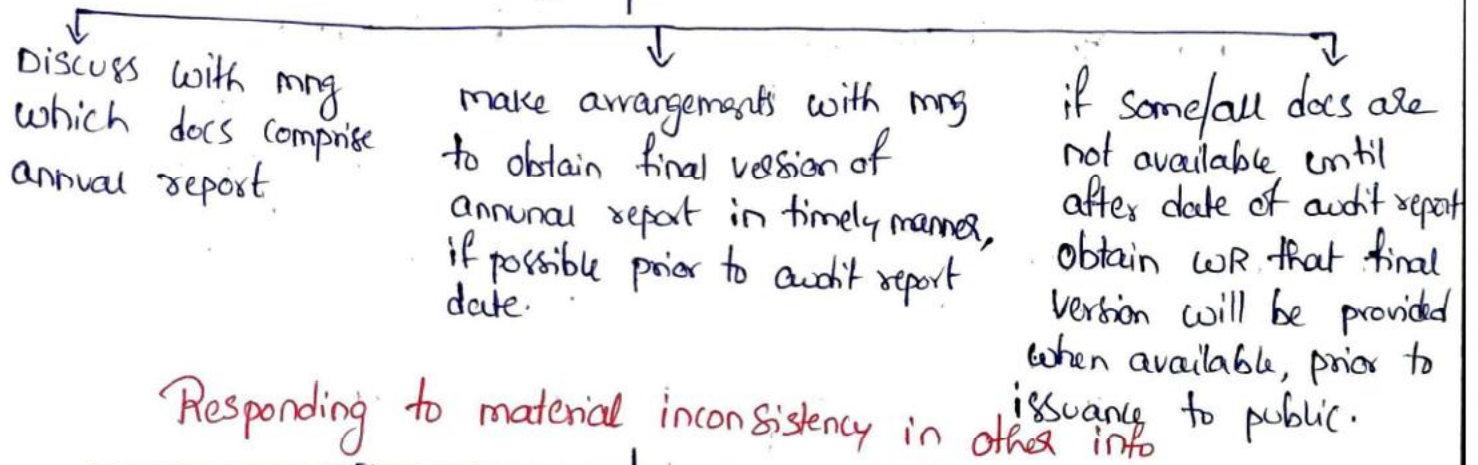 Discuss with mng
which docs comprise
annual report.
make arrangements with mng
to obtain final version of
annunal report in timely manner,
if possible prior to audit report
date.
if some/all docs are
not available until
after date of audit report
obtain WR that final
version will be provided
when available, prior to
issuance to public.
Responding to material inconsistency in other info